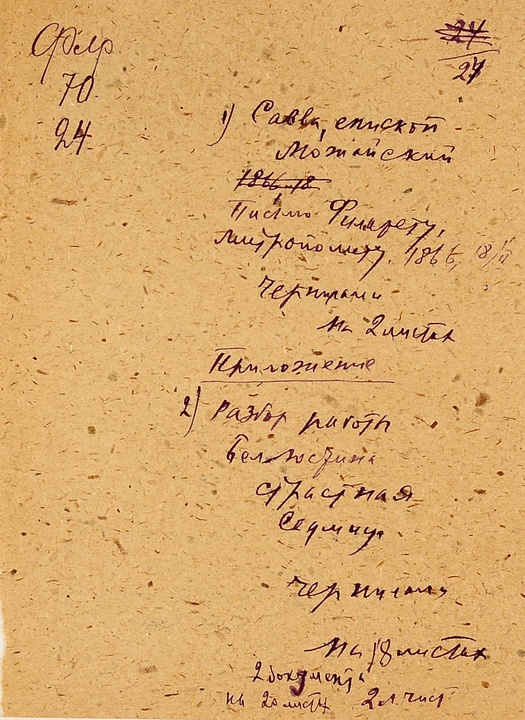 Филар
70
24
24
27
1) Савва, епископ
Можайский
1866-18
Письмо Филарету,
митрополиту. 1866, 18/II
Чернилами
на 2 листах
Приложение
2) Разбор работы
Беллюстина
Страстная
Седмица
Чернилами
на 18 листах
2 документа
на 20 листах 2 л. чист